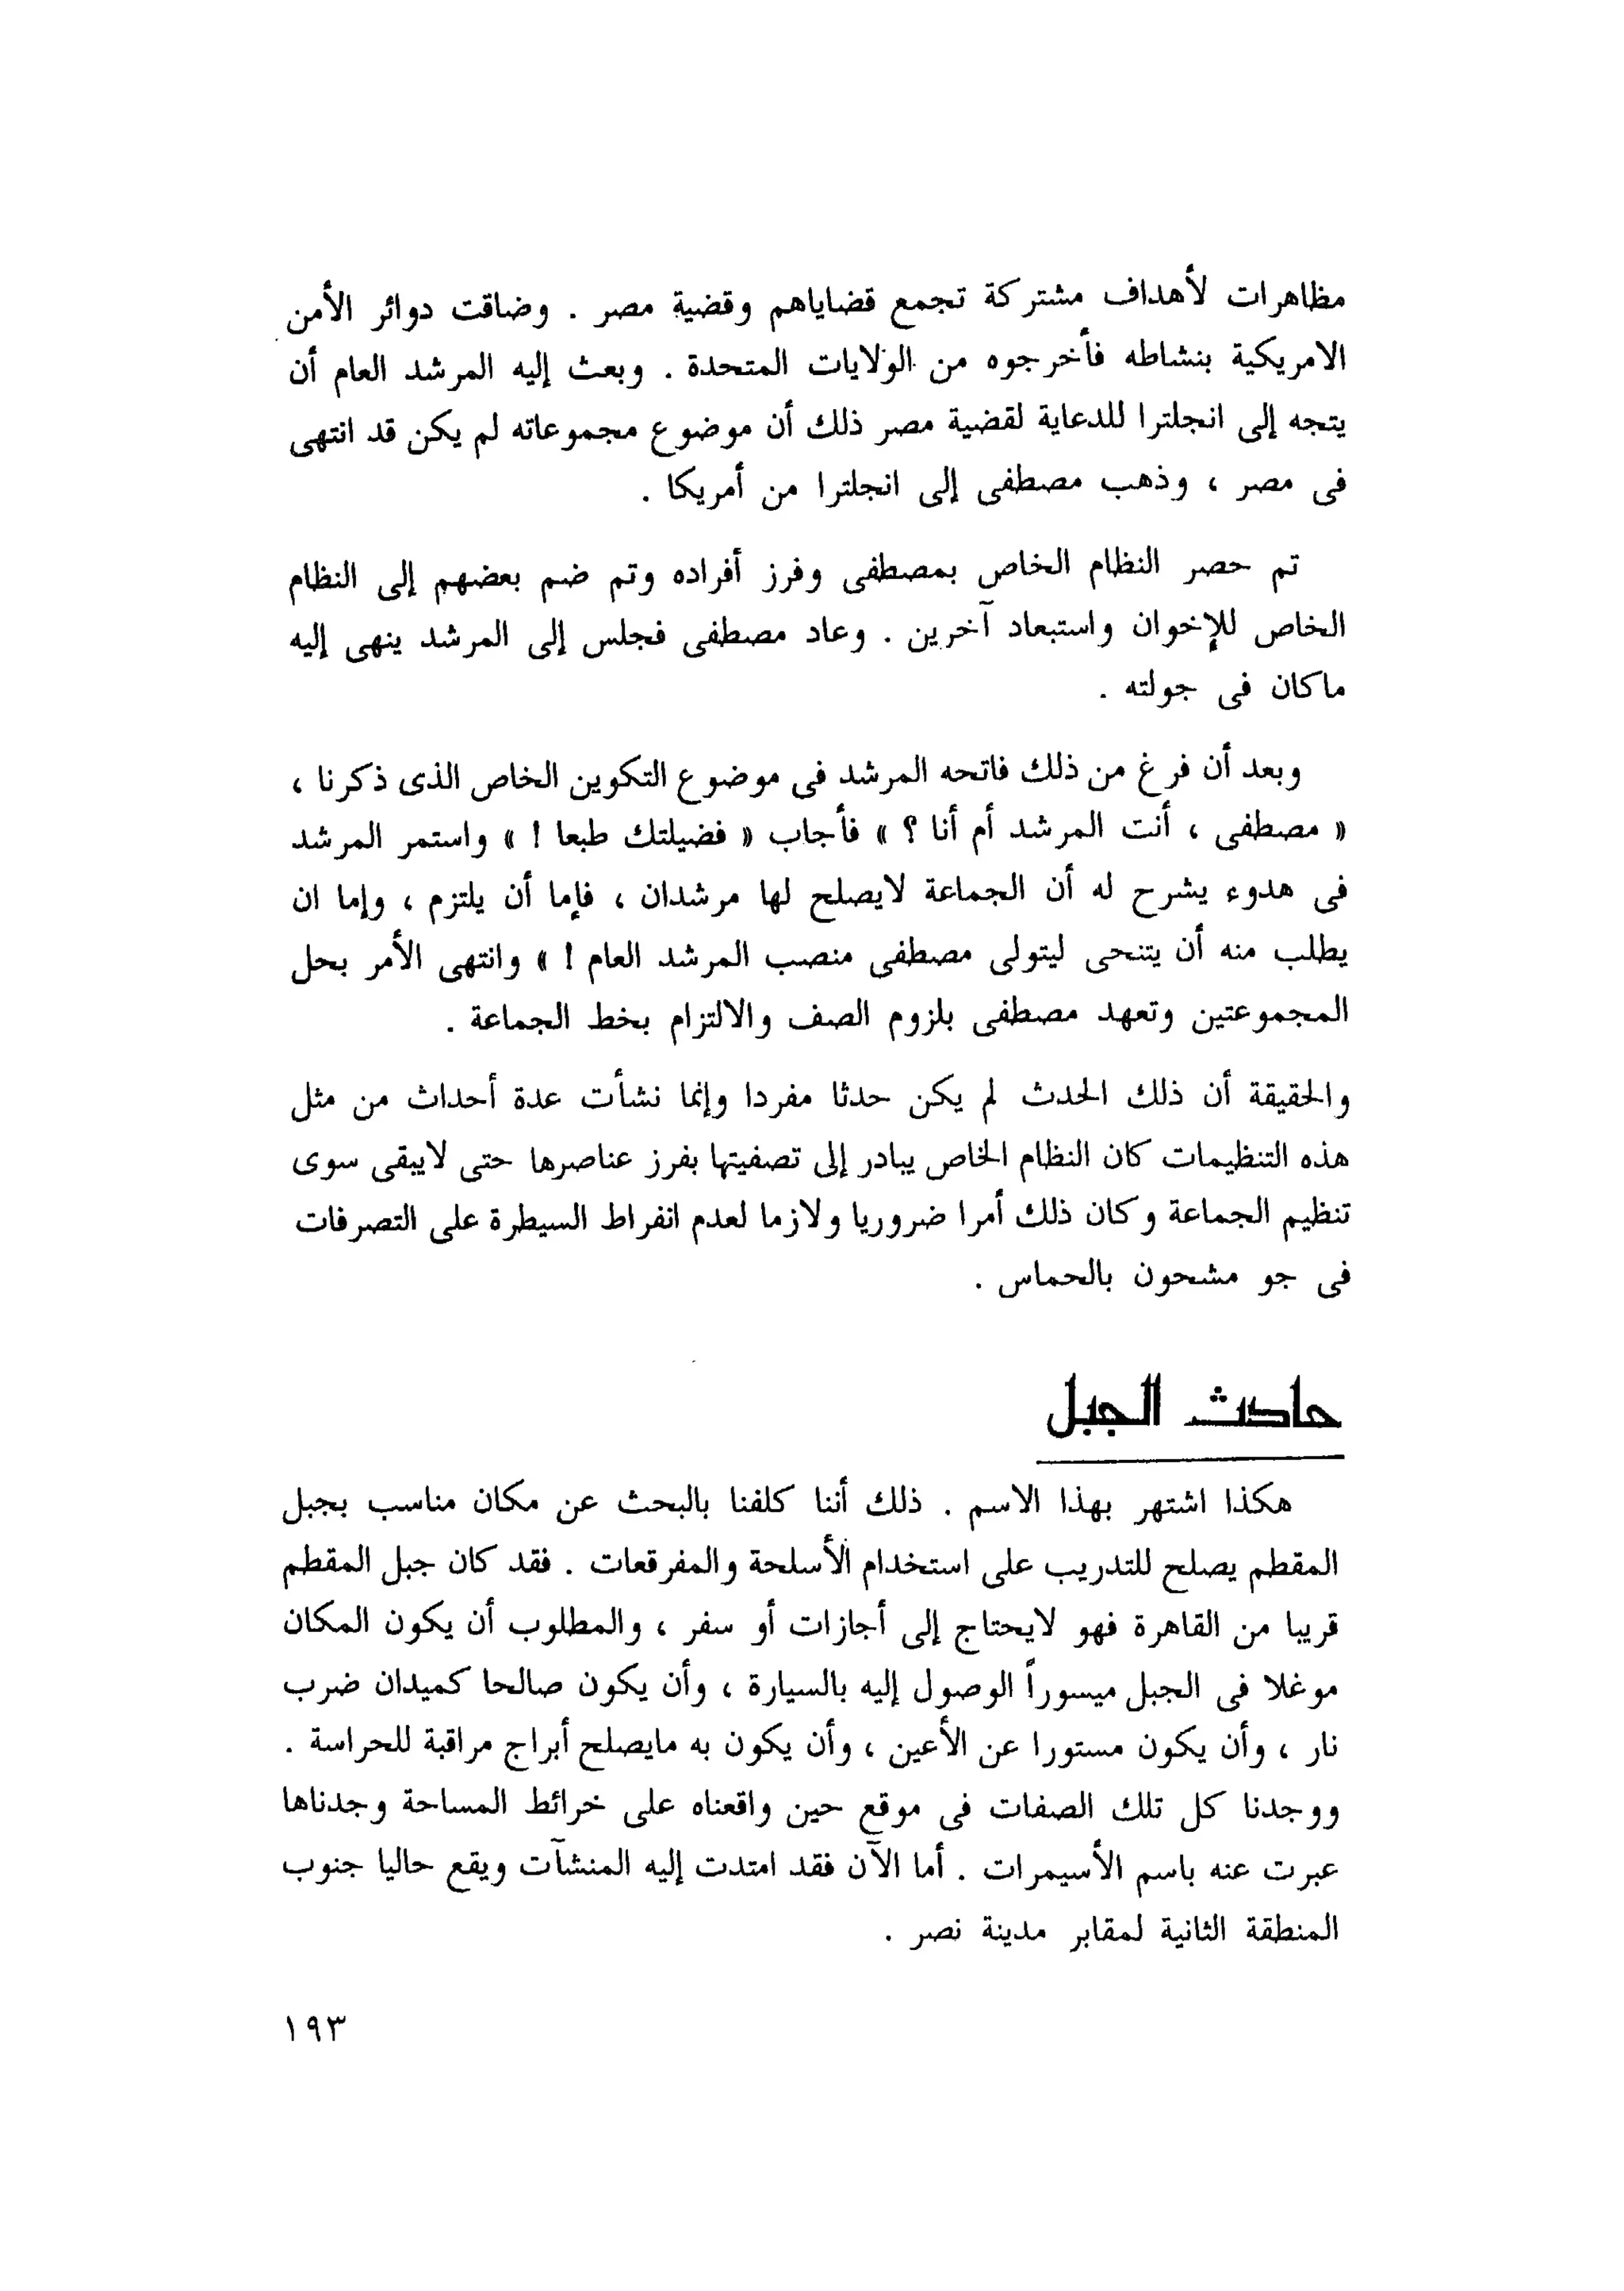 مظاهرات لأهداف مشتركة تجمع قضاياهم وقضية مصر . وضاقت دوائر الأمن
الامريكية بنشاطه فأخرجوه من الولايات المتحدة . وبعث إليه المرشد العام أن
يتجه إلى انجلترا للدعاية لقضية مصر ذلك أن موضوع مجموعاته لم يكن قد انتهى
فى مصر ، وذهب مصطفى إلى انجلترا من أمريكا .
تم حصر النظام الخاص بمصطفى وفرز أفراده وتم ضم بعضهم إلى النظام
الخاص للإخوان واستبعاد آخرين . وعاد مصطفى فجلس إلى المرشد ينهى إليه
ماكان فى جولته .
وبعد أن فرغ من ذلك فاتحه المرشد فى موضوع التكوين الخاص الذى ذكرنا ،
« مصطفى ، أنت المرشد أم أنا ؟ » فأجاب « فضيلتك طبعا ! » واستمر المرشد
فى هدوء يشرح له أن الجماعة لايصلح لها مرشدان ، فإما أن يلتزم ، وإما ان
يطلب منه أن يتنحى ليتولى مصطفى منصب المرشد العام ! » وانتهى الأمر بحل
المجموعتين وتعهد مصطفى بلزوم الصف والالتزام بخط الجماعة .
والحقيقة أن ذلك الحدث لم يكن حدثا مفردا وإنما نشأت عدة أحداث من مثل
هذه التنظيمات كان النظام الخاص يبادر إلى تصفيتها بفرز عناصرها حتى لايبقى سوى
تنظيم الجماعة وكان ذلك أمرا ضروريا ولازما لعدم انفراط السيطرة على التصرفات
فى جو مشحون بالحماس .
حادث الجبل
هكذا اشتهر بهذا الاسم . ذلك أننا كلفنا بالبحث عن مكان مناسب بجبل
المقطم يصلح للتدريب على استخدام الأسلحة والمفرقعات . فقد كان جبل المقطم
قريبا من القاهرة فهو لايحتاج إلى أجازات أو سفر ، والمطلوب أن يكون المكان
موغلا فى الجبل ميسوراً الوصول إليه بالسيارة ، وأن يكون صالحا كميدان ضرب
نار ، وأن يكون مستورا عن الأعين ، وأن يكون به مايصلح أبراج مراقبة للحراسة .
ووجدنا كل تلك الصفات فى موقع حين واقعناه على خرائط المساحة وجدناها
عبرت عنه باسم الأسيمرات . أما الآن فقد امتدت إليه المنشآت ويقع حاليا جنوب
المنطقة الثانية لمقابر مدينة نصر .
١٩٣